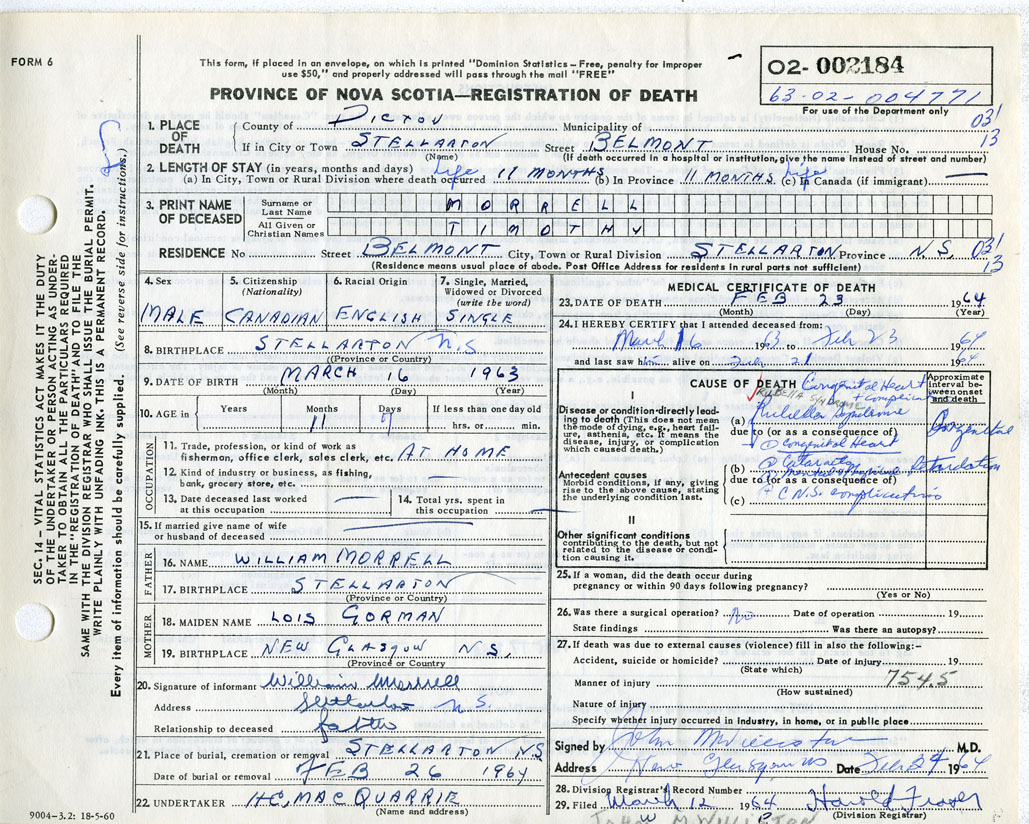 FORM 6
This form, if placed in an envelope, on which is printed "Dominion Statistics – Free, penalty for improper
use $50," and properly addressed will pass through the mail "FREE"
PROVINCE OF NOVA SCOTIA—REGISTRATION OF DEATH
O2- 002184
63-02-004771
For use of the Department only
031
13
SEC. 14 – VITAL STATISTICS ACT MAKES IT THE DUTY
OF THE UNDERTAKER OR PERSON ACTING AS UNDER-
TAKER TO OBTAIN ALL THE PARTICULARS REQUIRED
IN THE "REGISTRATION OF DEATH" AND TO FILE THE
SAME WITH THE DIVISION REGISTRAR WHO SHALL ISSUE THE BURIAL PERMIT.
WRITE PLAINLY WITH UNFADING INK. THIS IS A PERMANENT RECORD.
Every item of information should be carefully supplied. (See reverse side for instructions.)
1. PLACE OF DEATH
County of PICTOU Municipality of
If in City or Town STELLARTON Street BELMONT House No.
(Name) (If death occurred in a hospital or institution, give the name instead of street and number)
2. LENGTH OF STAY (in years, months and days)
(a) In City, Town or Rural Division where death occurred life 11 MONTHS (b) In Province 11 MONTHS life (c) In Canada (if immigrant) —
3. PRINT NAME OF DECEASED
Surname or Last Name MORRELL
All Given or Christian Names TIMOTHY
RESIDENCE No Street BELMONT City, Town or Rural Division STELLARTON Province N.S. 031
13
(Residence means usual place of abode. Post Office Address for residents in rural parts not sufficient)
4. Sex
MALE
5. Citizenship (Nationality)
CANADIAN
6. Racial Origin
ENGLISH
7. Single, Married, Widowed or Divorced (write the word)
SINGLE
8. BIRTHPLACE STELLARTON N.S
(Province or Country)
9. DATE OF BIRTH MARCH 16 1963
(Month) (Day) (Year)
10. AGE in Years Months Days If less than one day old
11 7 hrs. or min.
OCCUPATION
11. Trade, profession, or kind of work as
fisherman, office clerk, sales clerk, etc. AT HOME
12. Kind of industry or business, as fishing,
bank, grocery store, etc. —
13. Date deceased last worked at this occupation —
14. Total yrs. spent in this occupation —
15. If married give name of wife
or husband of deceased —
FATHER
16. NAME WILLIAM MORRELL
17. BIRTHPLACE STELLARTON
(Province or Country)
MOTHER
18. MAIDEN NAME LOIS GORMAN
19. BIRTHPLACE NEW GLASGOW N.S.
(Province or Country)
20. Signature of informant William Morrell
Address Stellarton N.S.
Relationship to deceased father
21. Place of burial, cremation or removal STELLARTON N.S
Date of burial or removal FEB 26 1964
22. UNDERTAKER H.C. MACQUARRIE
(Name and address)
9004-3.2: 18-5-60
MEDICAL CERTIFICATE OF DEATH
23. DATE OF DEATH FEB 23 1964
(Month) (Day) (Year)
24. I HEREBY CERTIFY that I attended deceased from:
March 16 1963 to Feb 23 1964
and last saw him alive on 21 1964
CAUSE OF DEATH
Approximate interval between onset and death
I
Disease or condition directly leading to death (This does not mean the mode of dying, e.g., heart failure, asthenia, etc. It means the disease, injury, or complication which caused death.)
Congenital Heart
+ complications
RUBELLA SYNDROME
(a) Rubella Syndrome Congenital
due to (or as a consequence of)
① Congenital Heart
Antecedent causes
Morbid conditions, if any, giving rise to the above cause, stating the underlying condition last.
(b) Retardation
due to (or as a consequence of)
+ C.N.S. complications
(c)
II
Other significant conditions
contributing to the death, but not related to the disease or condition causing it.
25. If a woman, did the death occur during
pregnancy or within 90 days following pregnancy?
(Yes or No)
26. Was there a surgical operation? No Date of operation 19
State findings Was there an autopsy?
27. If death was due to external causes (violence) fill in also the following:-
Accident, suicide or homicide? Date of injury 19
(State which)
Manner of injury 754.5
(How sustained)
Nature of injury
Specify whether injury occurred in industry, in home, or in public place
Signed by John M. Williston M.D.
Address New Glasgow NS Date Feb 24 1964
28. Division Registrar's Record Number
29. Filed March 12 1964 Harold Fraser
(Division Registrar)
JOHN M WILLISTON